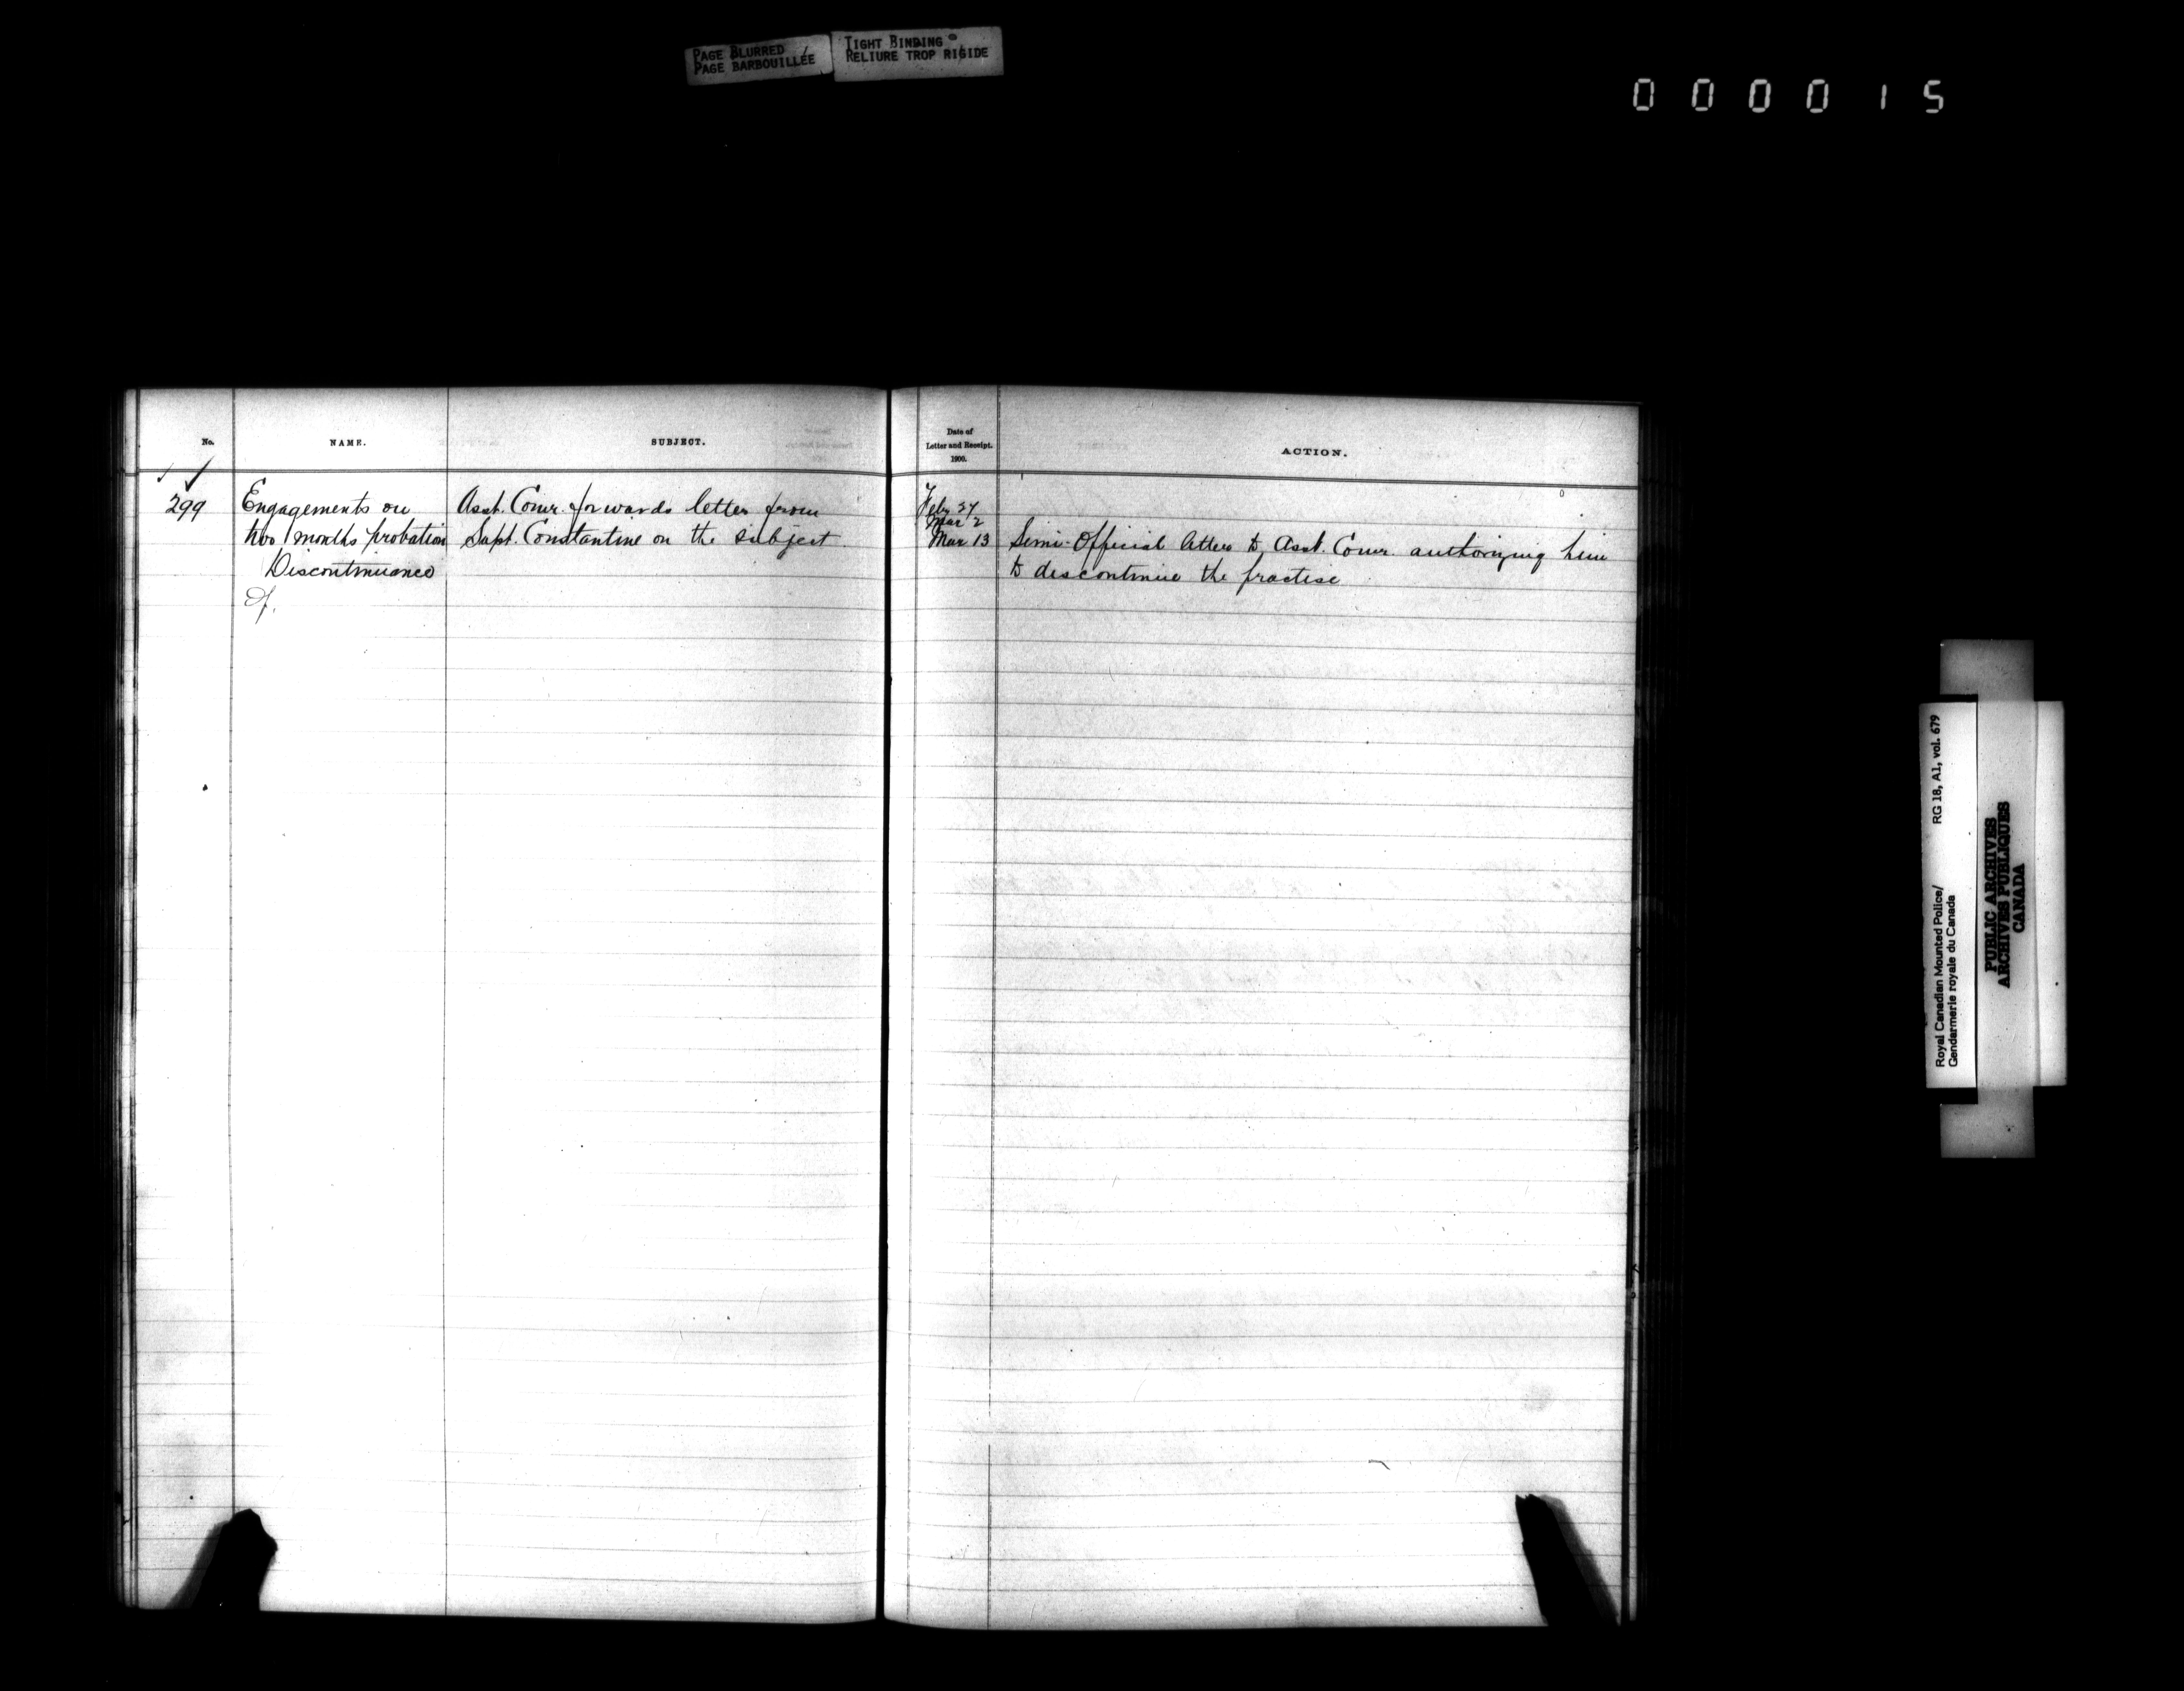 PAGE BLURRED
PAGE BARBOUILLÉE
TIGHT BINDING
RELIURE TROP RIGIDE
000015
No.
NAME.
SUBJECT.
Date of
Letter and Receipt.
1900.
ACTION.
299
Engagements on
two months probation
Discontinuance
of.
Asst. Comr. forwards letter from
Supt. Constantine on the subject
Feby 27
Mar 2
Mar 13
Semi-Official letter to Asst. Comr. authorizing him
to discontinue the practise
Royal Canadian Mounted Police/
Gendarmerie royale du Canada
RG 18, A1, vol. 679
PUBLIC ARCHIVES
ARCHIVES PUBLIQUES
CANADA